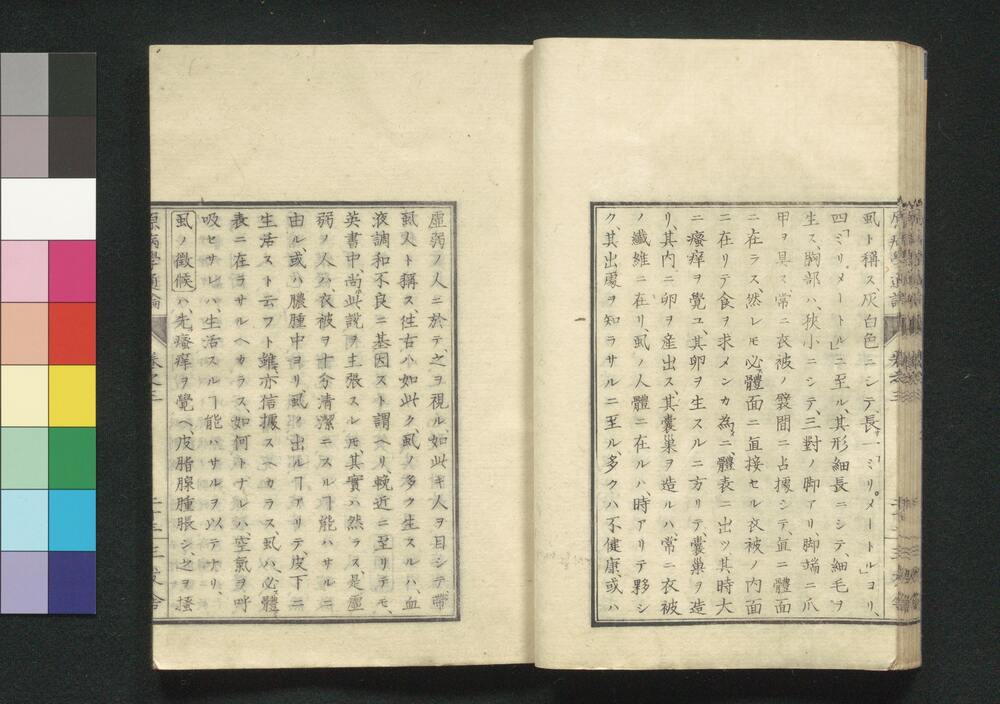 虱ト稱ス灰白色ニシテ、長一「ミリメートル」ヨリ、
四「ミリメートル」ニ至ル、其形細長ニシテ、細毛ヲ
生ス、胸部ハ、狹小ニシテ、三對ノ脚アリ、脚端ニ爪
甲ヲ具ス、常ニ衣被ノ襞間ニ占據シテ、直ニ體面
ニ在ラス、然レモ必體面ニ直接セル衣被ノ内面
ニ在リテ食ヲ求メンカ為ニ、體表ニ出ツ、其時大
ニ瘙痒ヲ覺ユ、其卵ヲ生スルニ方リテ、囊巢ヲ造
リ、其内ニ卵ヲ産出ス、其囊巢ヲ造ルハ、常ニ衣被
ノ纖維ニ在リ、虱ノ人體ニ在ルハ、時アリテ夥シ
ク、其出處ヲ知ラサルニ至ル、多クハ不健康、或ハ
虚弱ノ人ニ於テ之ヲ視ル、如此キ人ヲ目シテ帶
虱人ト稱ス、往古ハ如此ク、虱ノ多ク生スルハ、血
液調和不良ニ基因スト謂ヘリ、輓近ニ至リテモ、
英書中、尚此說ヲ主張スレモ、其實ハ然ラス、是虚
弱ノ人ハ、衣被ヲ十分清潔ニスルヿ能ハサルニ
由ル、或ハ膿腫中ヨリ、虱ノ出ルヿアリテ、皮下ニ
生活スト云フト雖、亦信據スヘカラス、虱ハ、必體
表ニ在ラサルヘカラス、如何トナレハ、空氣ヲ呼
吸セサレハ、生活スルヿ能ハサルヲ以テナリ、
虱ノ徵候ハ、先瘙痒ヲ覺ヘ、皮脂腺腫脹シ、之ヲ搔
原病學通論 卷之三 二十三 三友舎